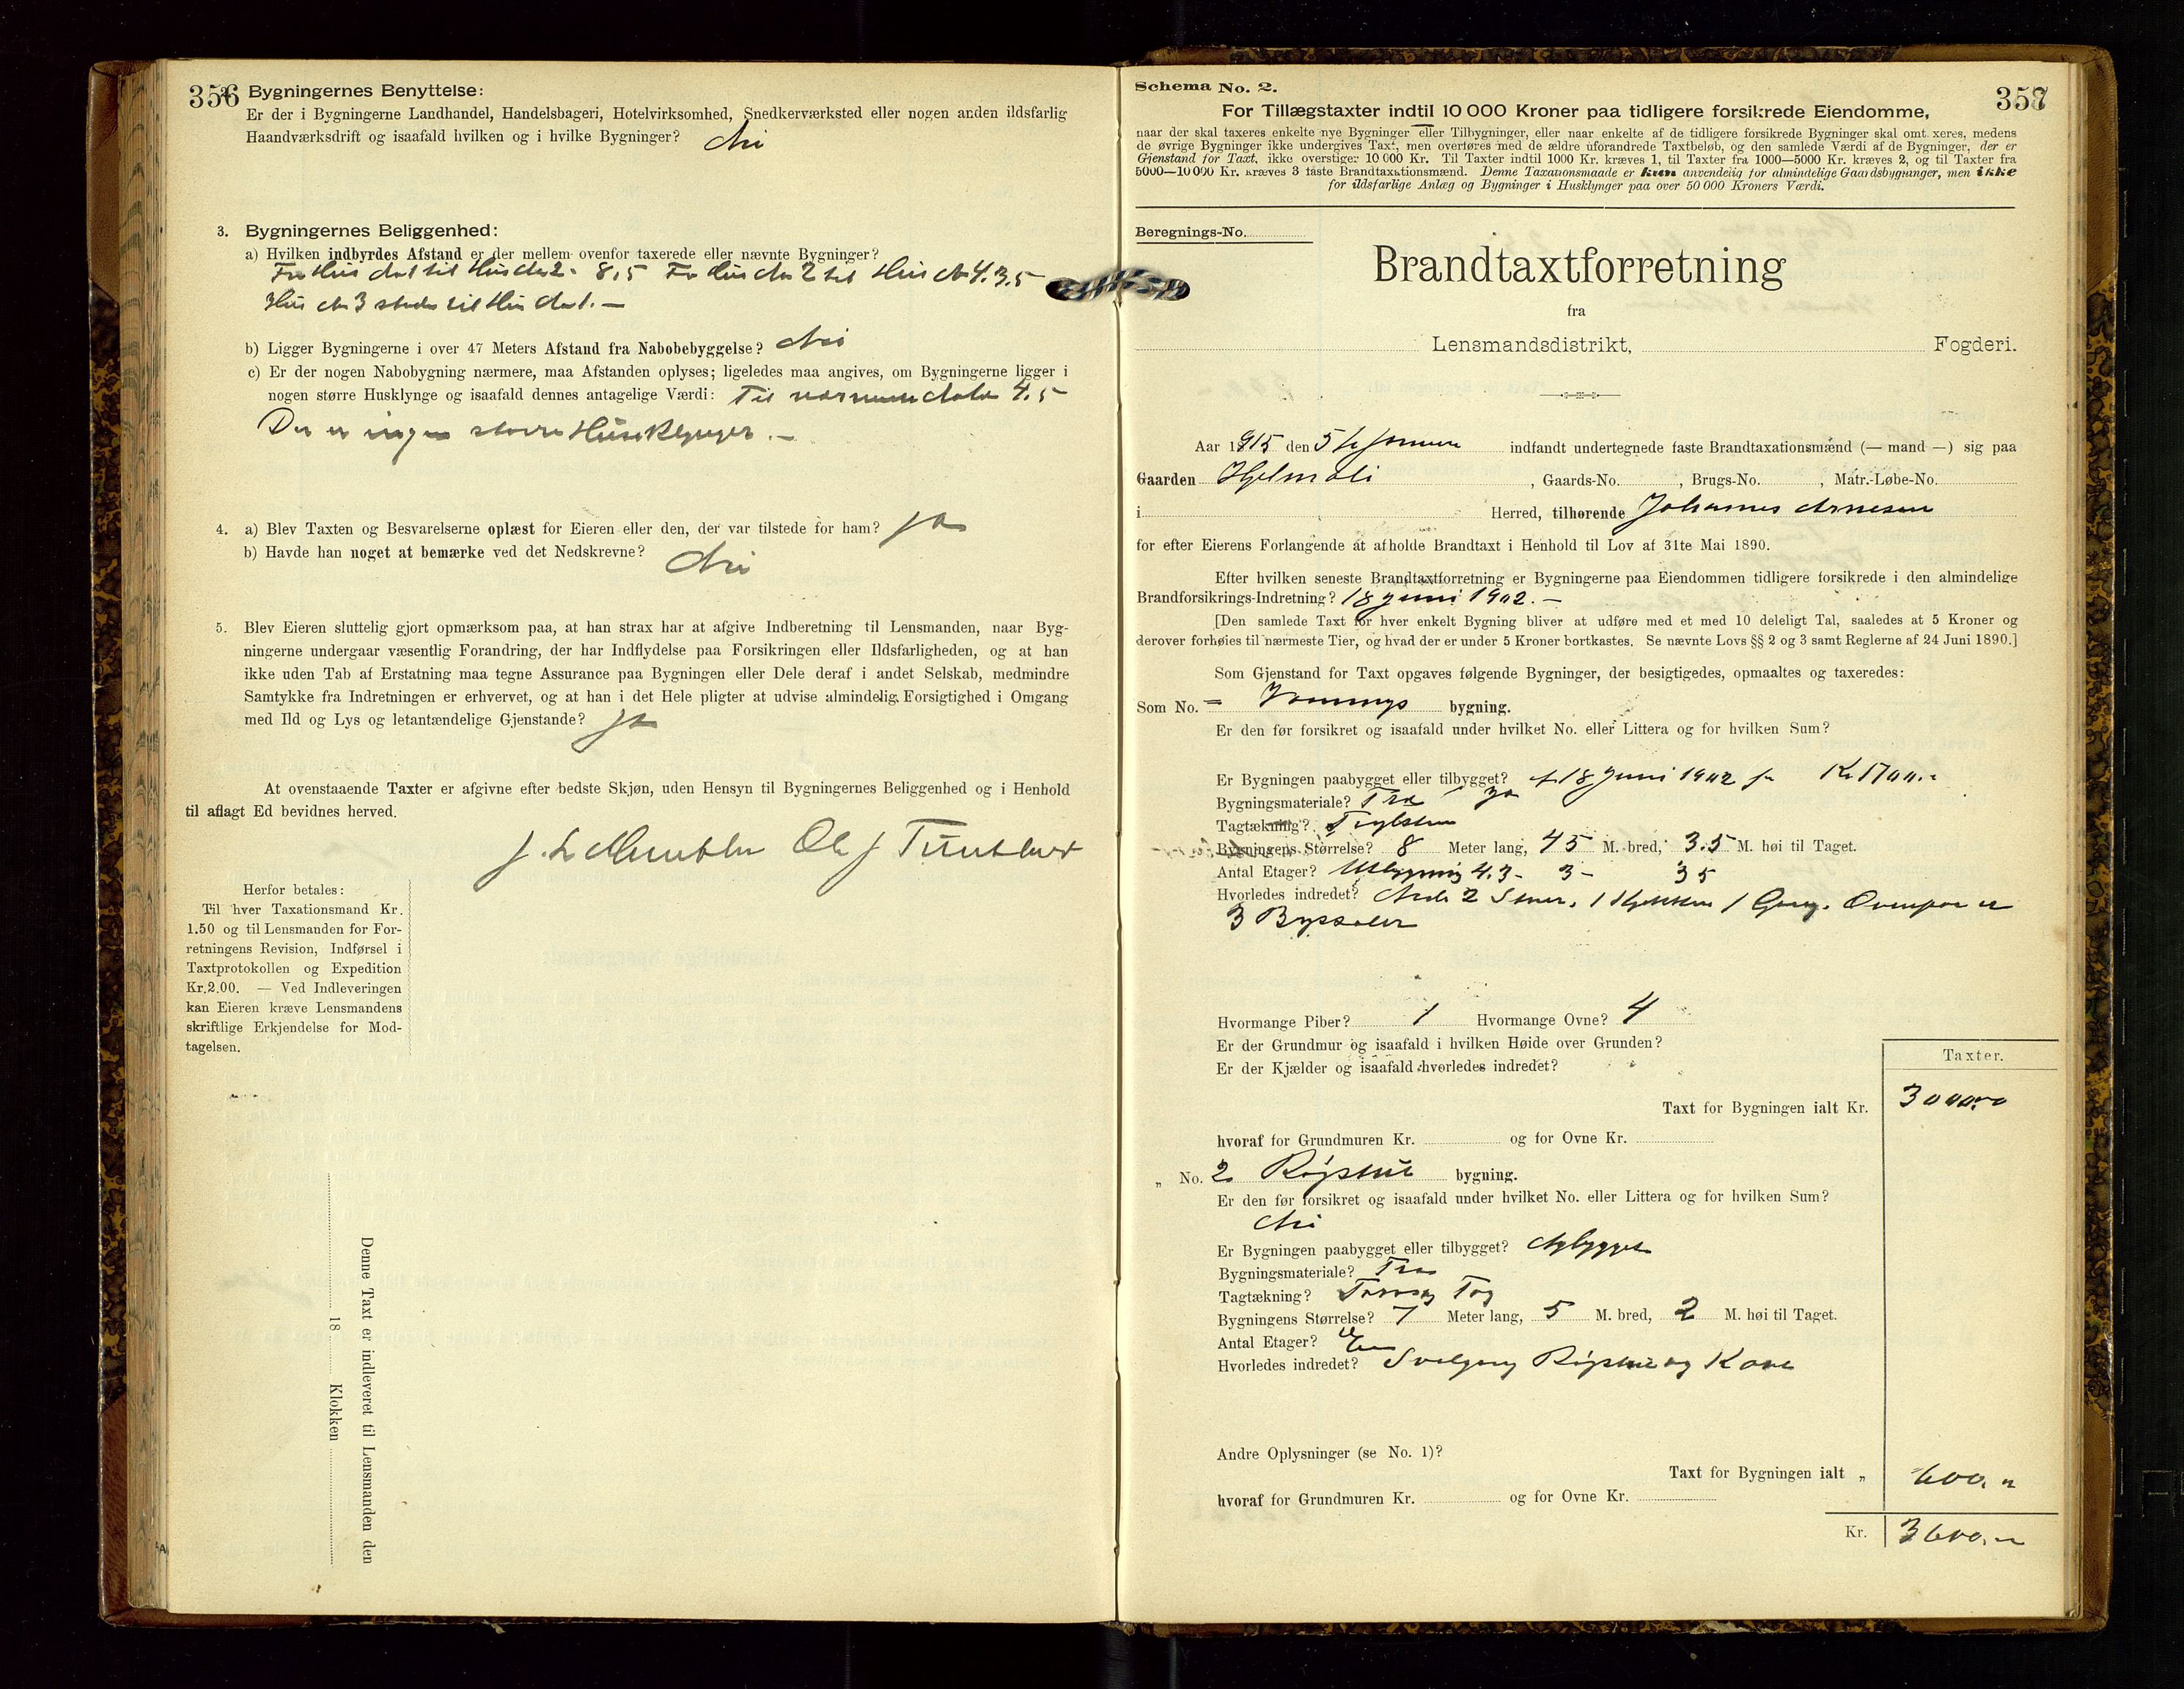 356
2. Bygningernes Benyttelse:
Er der i Bygningerne Landhandel, Handelsbageri, Hotelvirksomhed, Snedkerværksted eller nogen anden ildsfarlig
Haandværksdrift og isaafald hvilken og i hvilke Bygninger? Nei
3. Bygningernes Beliggenhed:
a) Hvilken indbyrdes Afstand er der mellem ovenfor taxerede eller nævnte Bygninger?
Fra Hus No 1 til Hus No 2 - 8,5 Fra Hus No 2 til Hus No 4. 3.5 -
Hus No 3 støder til Hus No 1. -
b) Ligger Bygningerne i over 47 Meters Afstand fra Nabobebyggelse? Nei
c) Er der nogen Nabobygning nærmere, maa Afstanden oplyses; ligeledes maa angives, om Bygningerne ligger i
nogen større Husklynge og isaafald dennes antagelige Værdi: Til nærmeste Nabo 4.5 -
Der er ingen større Husklynger. -
4. a) Blev Taxten og Besvarelserne oplæst for Eieren eller den, der var tilstede for ham? Ja
b) Havde han noget at bemærke ved det Nedskrevne? Nei
5. Blev Eieren sluttelig gjort opmærksom paa, at han strax har at afgive Indberetning til Lensmanden, naar Byg-
ningerne undergaar væsentlig Forandring, der har Indflydelse paa Forsikringen eller Ildsfarligheden, og at han
ikke uden Tab af Erstatning maa tegne Assurance paa Bygningen eller Dele deraf i andet Selskab, medmindre
Samtykke fra Indretningen er erhvervet, og at han i det Hele pligter at udvise almindelig Forsigtighed i Omgang
med Ild og Lys og letantændelige Gjenstande? Ja
At ovenstaaende Taxter er afgivne efter bedste Skjøn, uden Hensyn til Bygningernes Beliggenhed og i Henhold
til aflagt Ed bevidnes herved.
Ole J
Herfor betales:
Til hver Taxationsmand Kr.
1.50 og til Lensmanden for For-
retningens Revision, Indførsel i
Taxtprotokollen og Expedition
Kr. 2.00. — Ved Indleveringen
kan Eieren kræve Lensmandens
skriftlige Erkjendelse for Mod-
tagelsen.
Denne Taxt er indleveret til Lensmanden den
18 Klokken
Schema No. 2.
357
For Tillægstaxter indtil 10 000 Kroner paa tidligere forsikrede Eiendomme,
naar der skal taxeres enkelte nye Bygninger eller Tilbygninger, eller naar enkelte af de tidligere forsikrede Bygninger skal omtaxeres, medens
de øvrige Bygninger ikke undergives Taxt, men overføres med de ældre uforandrede Taxtbeløb, og den samlede Værdi af de Bygninger, der er
Gjenstand for Taxt, ikke overstiger 10 000 Kr. Til Taxter indtil 1000 Kr. kræves 1, til Taxter fra 1000—5000 Kr. kræves 2, og til Taxter fra
5000—10 000 Kr. kræves 3 faste Brandtaxationsmænd. Denne Taxationsmaade er kun anvendelig for almindelige Gaardsbygninger, men ikke
for ildsfarlige Anlæg og Bygninger i Husklynger paa over 50 000 Kroners Værdi.
Beregnings-No.
Brandtaxtforretning
fra
Lensmandsdistrikt, Fogderi.
Aar 1915 den 5te indfandt undertegnede faste Brandtaxationsmænd (— mand —) sig paa
Gaarden Hjelmoli, Gaards-No. , Brugs-No. , Matr.-Løbe-No.
i Herred, tilhørende Johannes Arnesen
for efter Eierens Forlangende at afholde Brandtaxt i Henhold til Lov af 31te Mai 1890.
Efter hvilken seneste Brandtaxtforretning er Bygningerne paa Eiendommen tidligere forsikrede i den almindelige
Brandforsikrings-Indretning? 18 Juni 1902. -
[Den samlede Taxt for hver enkelt Bygning bliver at udføre med et med 10 deleligt Tal, saaledes at 5 Kroner og
derover forhøies til nærmeste Tier, og hvad der er under 5 Kroner bortkastes. Se nævnte Lovs §§ 2 og 3 samt Reglerne af 24 Juni 1890.]
Som Gjenstand for Taxt opgaves følgende Bygninger, der besigtigedes, opmaaltes og taxeredes:
Som No. - Vaanings bygning.
Er den før forsikret og isaafald under hvilket No. eller Littera og for hvilken Sum?
Er Bygningen paabygget eller tilbygget? af 18 Juni 1902 for Kr 1700.-
Bygningsmateriale? Træ Ja
Tagtækning? Teglsten
Bygningens Størrelse? 8 Meter lang, 4 5 M. bred, 3.5 M. høi til Taget.
Antal Etager? Utbygning 4.3 - 3 - 3 5
Hvorledes indredet? Nede 2 Stuer. 1 Kjøkken 1 Gang. Ovenpaa er
3
Hvormange Piber? 1 Hvormange Ovne? 4
Er der Grundmur og isaafald i hvilken Høide over Grunden?
Er der Kjælder og isaafald hvorledes indredet?
Taxter.
Taxt for Bygningen ialt Kr. 3000.00
hvoraf for Grundmuren Kr. og for Ovne Kr.
„ No. 2 Røgstue bygning.
Er den før forsikret og isaafald under hvilket No. eller Littera og for hvilken Sum?
Nei
Er Bygningen paabygget eller tilbygget? Nybygget
Bygningsmateriale? Træ
Tagtækning? Tag
Bygningens Størrelse? 7 Meter lang, 5 M. bred, 2 M. høi til Taget.
Antal Etager? En
Hvorledes indredet? Svalgang Røgstue og Kove
Andre Oplysninger (se No. 1)?
Taxt for Bygningen ialt „ 600. -
hvoraf for Grundmuren Kr. og for Ovne Kr.
Kr. 3600. -